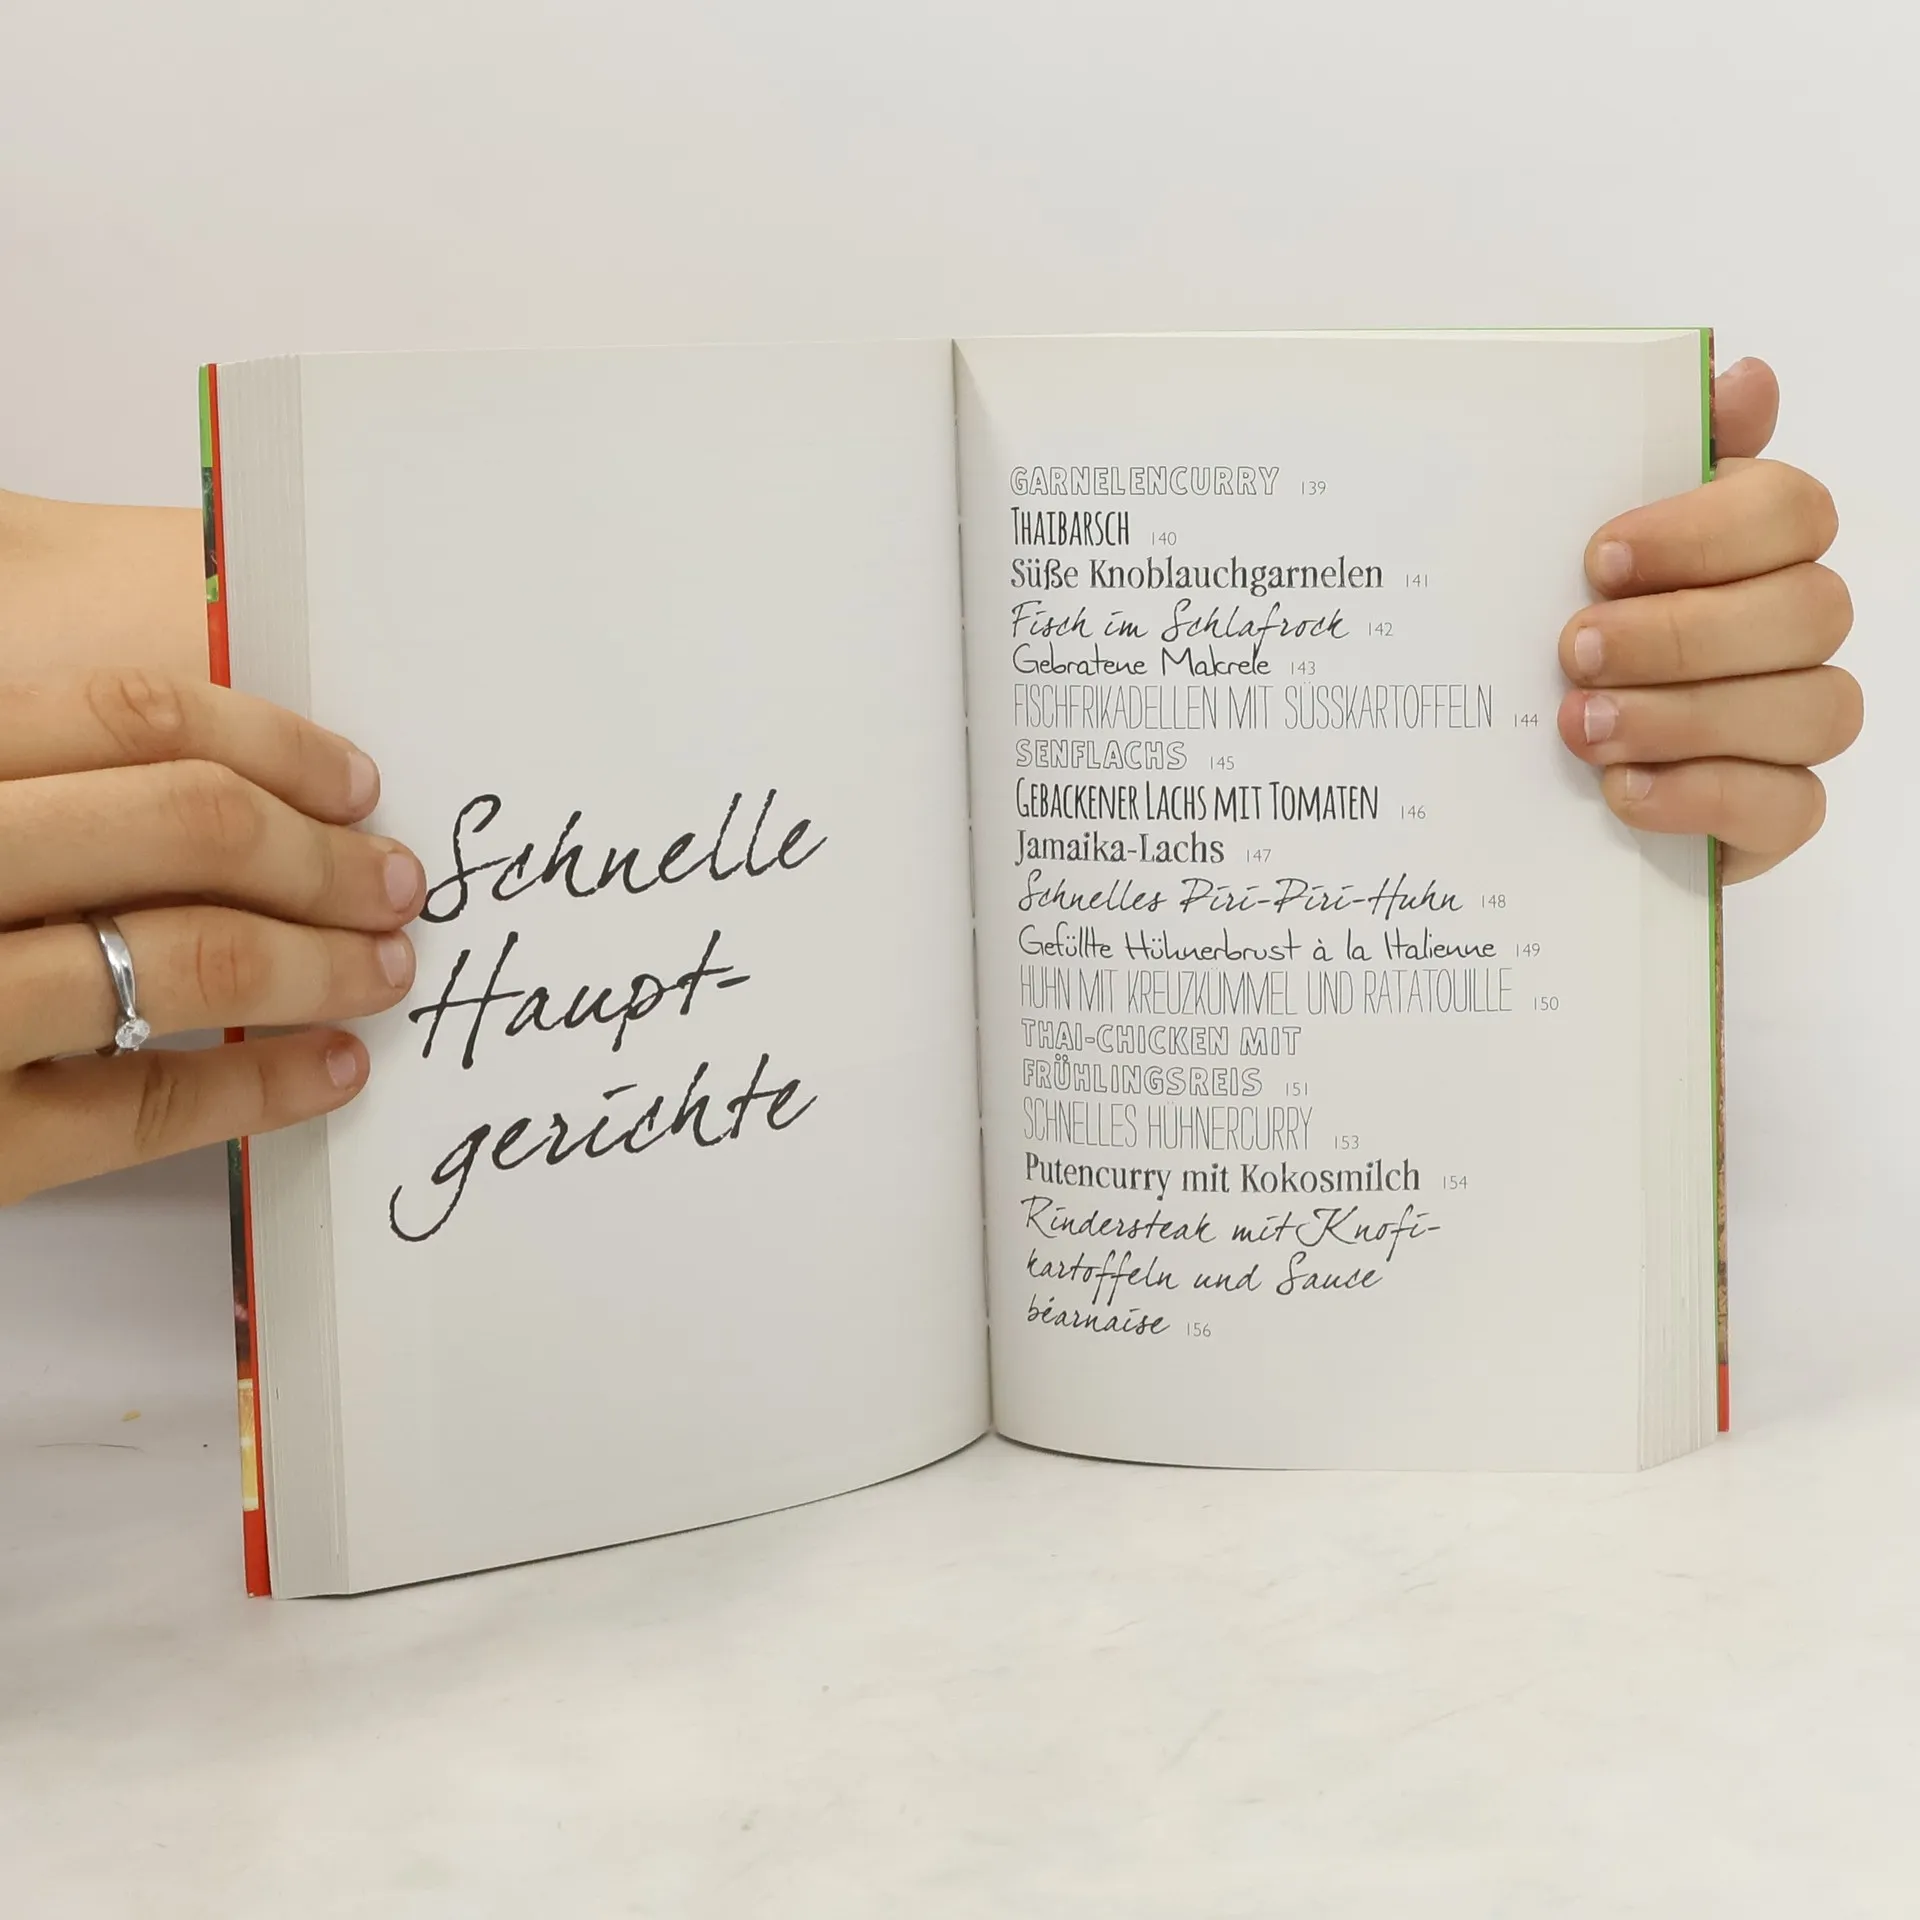 Schnelle
Haupt-
gerichte
GARNELENCURRY 139
THAIBARSCH 140
Süße Knoblauchgarnelen 141
Fisch im Schlafrock 142
Gebratene Makrele 143
FISCHFRIKADELLEN MIT SÜSSKARTOFFELN 144
SENFLACHS 145
GEBACKENER LACHS MIT TOMATEN 146
Jamaika-Lachs 147
Schnelles Piri-Piri-Huhn 148
Gefüllte Hühnerbrust à la Italienne 149
HUHN MIT KREUZKÜMMEL UND RATATOUILLE 150
THAI-CHICKEN MIT
FRÜHLINGSREIS 151
SCHNELLES HÜHNERCURRY 153
Putencurry mit Kokosmilch 154
Rindersteak mit Knofi-
kartoffeln und Sauce
béarnaise 156